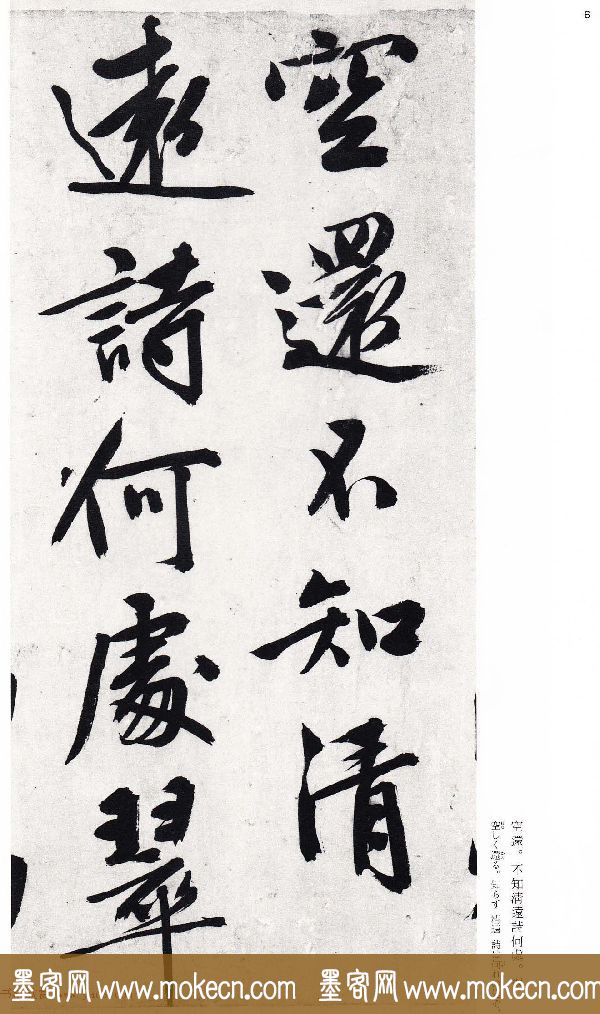 6
空還不知清
遠詩何處翠
空還。不知清遠詩何處。
空しく還る。知らず 清遠 詩は何
墨客网 www.mokecn.com 墨客网 www.mokecn.com